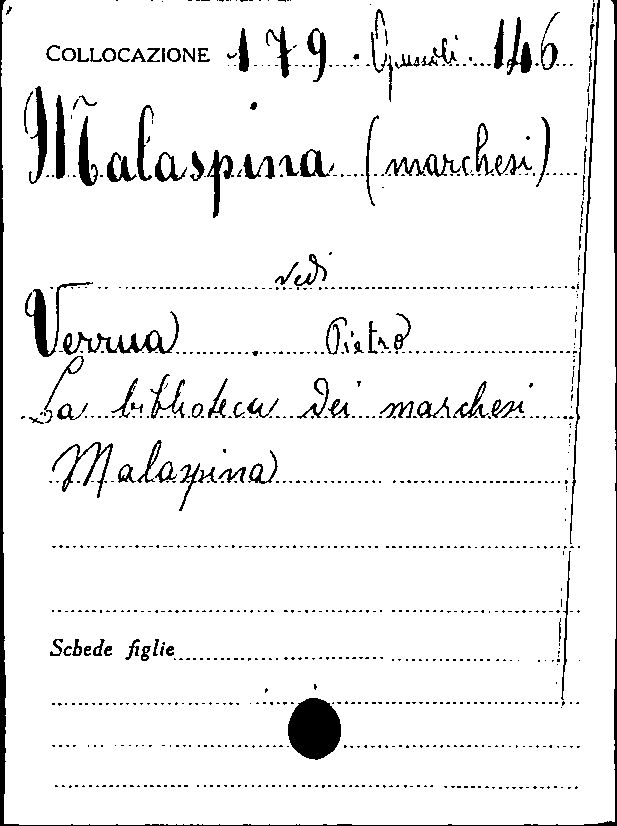 COLLOCAZIONE 179. Opuscoli. 146
Malaspina (marchesi)
vedi
Verrua. Pietro
La biblioteca dei marchesi
Malaspina
Schede figlie